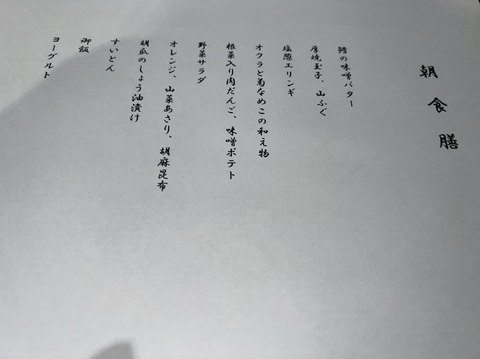 朝食膳
鱈の味噌バター
厚焼玉子、山ふぐ
塩麹エリンギ
オクラと菊なめこの和え物
根菜入り肉だんご、味噌ポテト
野菜サラダ
オレンジ、山菜あさり、胡麻昆布
胡瓜のしょう油漬け
すいとん
御飯
ヨーグルト